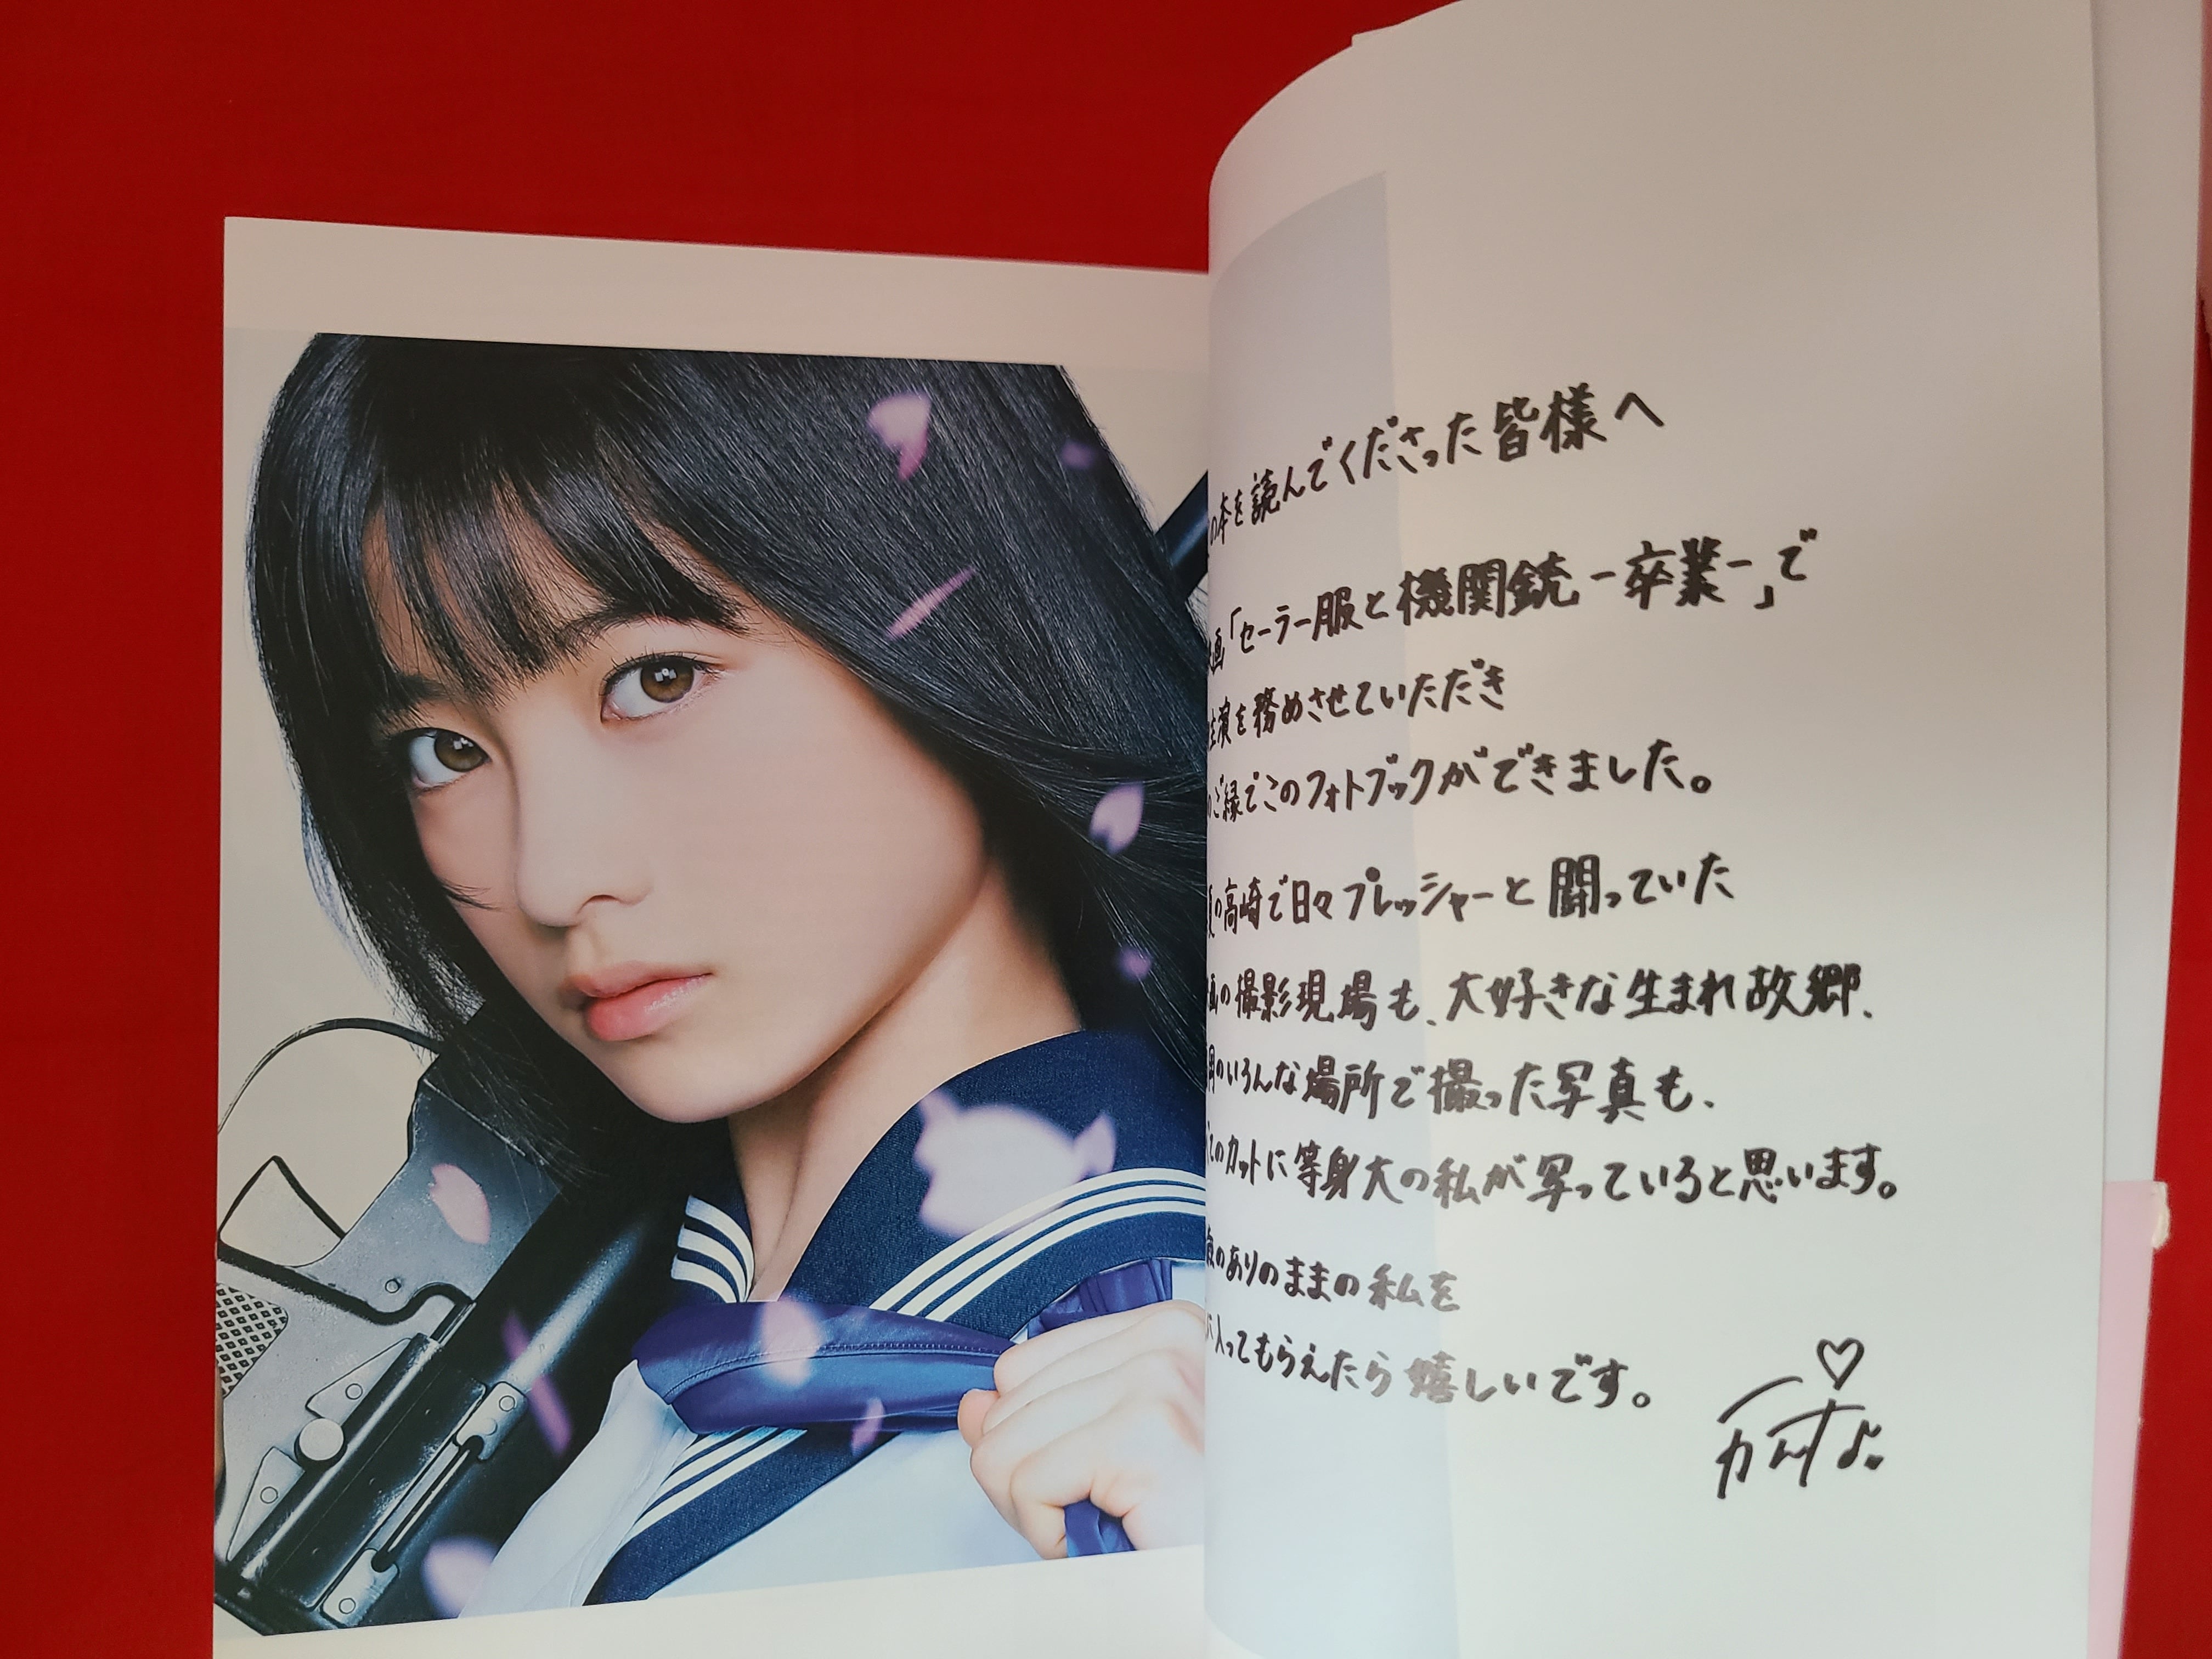 の本を読んでくださった皆様へ
画「セーラー服と機関銃-卒業-」で
主演を務めさせていただき
ご縁でこのフォトブックができました。
の高崎で日々プレッシャーと闘っていた
画の撮影現場も、大好きな生まれ故郷、
岡のいろんな場所で撮った写真も、
てのカットに等身大の私が写っていると思います。
歳のありのままの私を
に入ってもらえたら嬉しいです。
カンナ